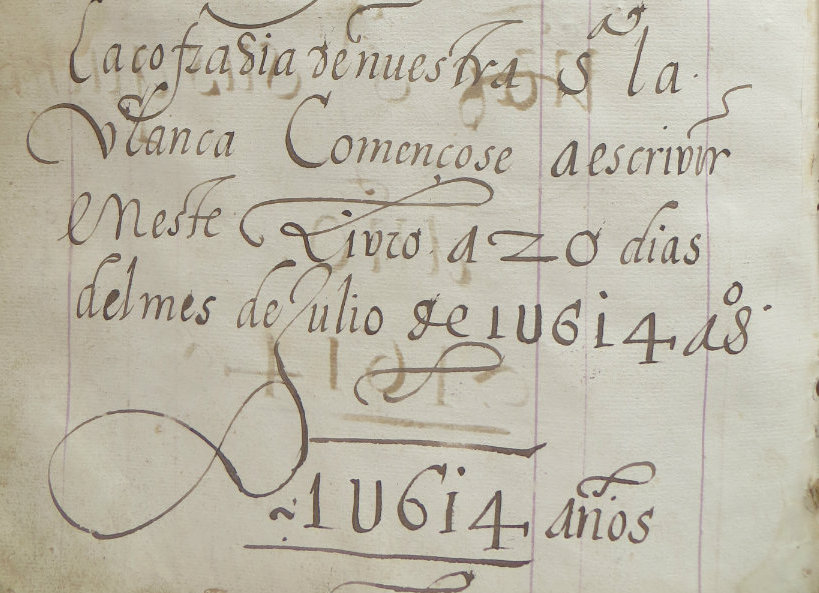 La cofradia de nuestra Sª la
Vlanca Començose a escrivir
en este Livro a 20 dias
del mes de Julio de 1U614 aºs
1U614 años